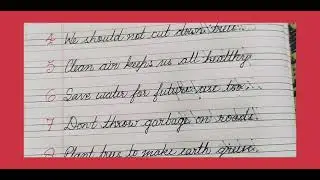 4 We should not cut down trees.
5 Clean air keeps us all healthy.
6 Save water for future use too.
7 Don't throw garbage on roads.
8 Plant trees to make earth green.